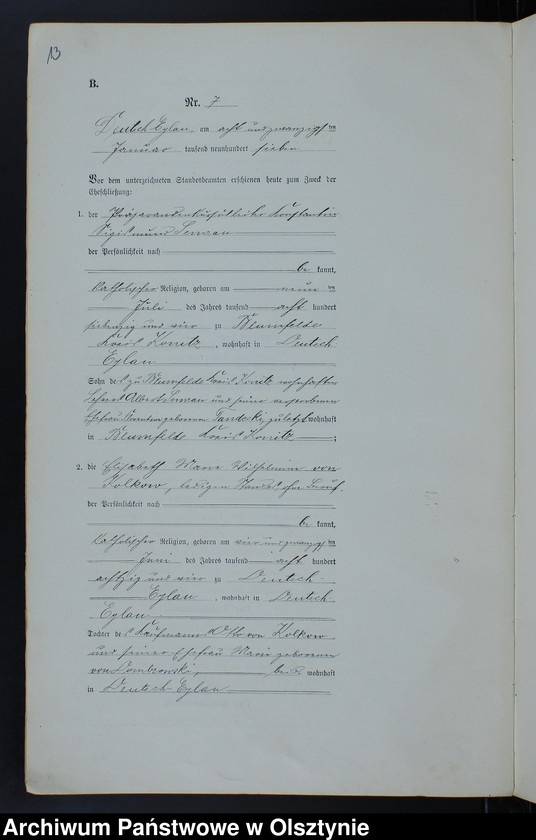 13
B.
Nr. 7
Deutsch Eylau am acht und zwanzigsten
Januar tausend neunhundert sieben
Vor dem unterzeichneten Standesbeamten erschienen heute zum Zweck der
Eheschließung:
1. der Konstantin
Sigismund
der Persönlichkeit nach
be kannt,
katholischer Religion, geboren am neun ten
Juli des Jahres tausend acht hundert
und vier zu Blumfelde
Kreis Konitz, wohnhaft in Deutsch
Eylau
Sohn des zu Blumfelde Kreis Konitz wohnhaften
Lehrers Albert und seiner verstorbenen
Ehefrau geborenen zuletzt wohnhaft
in Blumfelde Kreis Konitz;
2. die Elisabeth Marie Wilhelmine von
Kolkow, ledigen Standes ohne Beruf
der Persönlichkeit nach
be kannt,
katholischer Religion, geboren am vier und zwanzigsten
Juni des Jahres tausend acht hundert
achtzig und vier zu Deutsch
Eylau, wohnhaft in Deutsch
Eylau
Tochter des Kaufmanns Otto von Kolkow
und seiner Ehefrau Marie geborenen
von Dombrowski, beide wohnhaft
in Deutsch Eylau
Archiwum Państwowe w Olsztynie